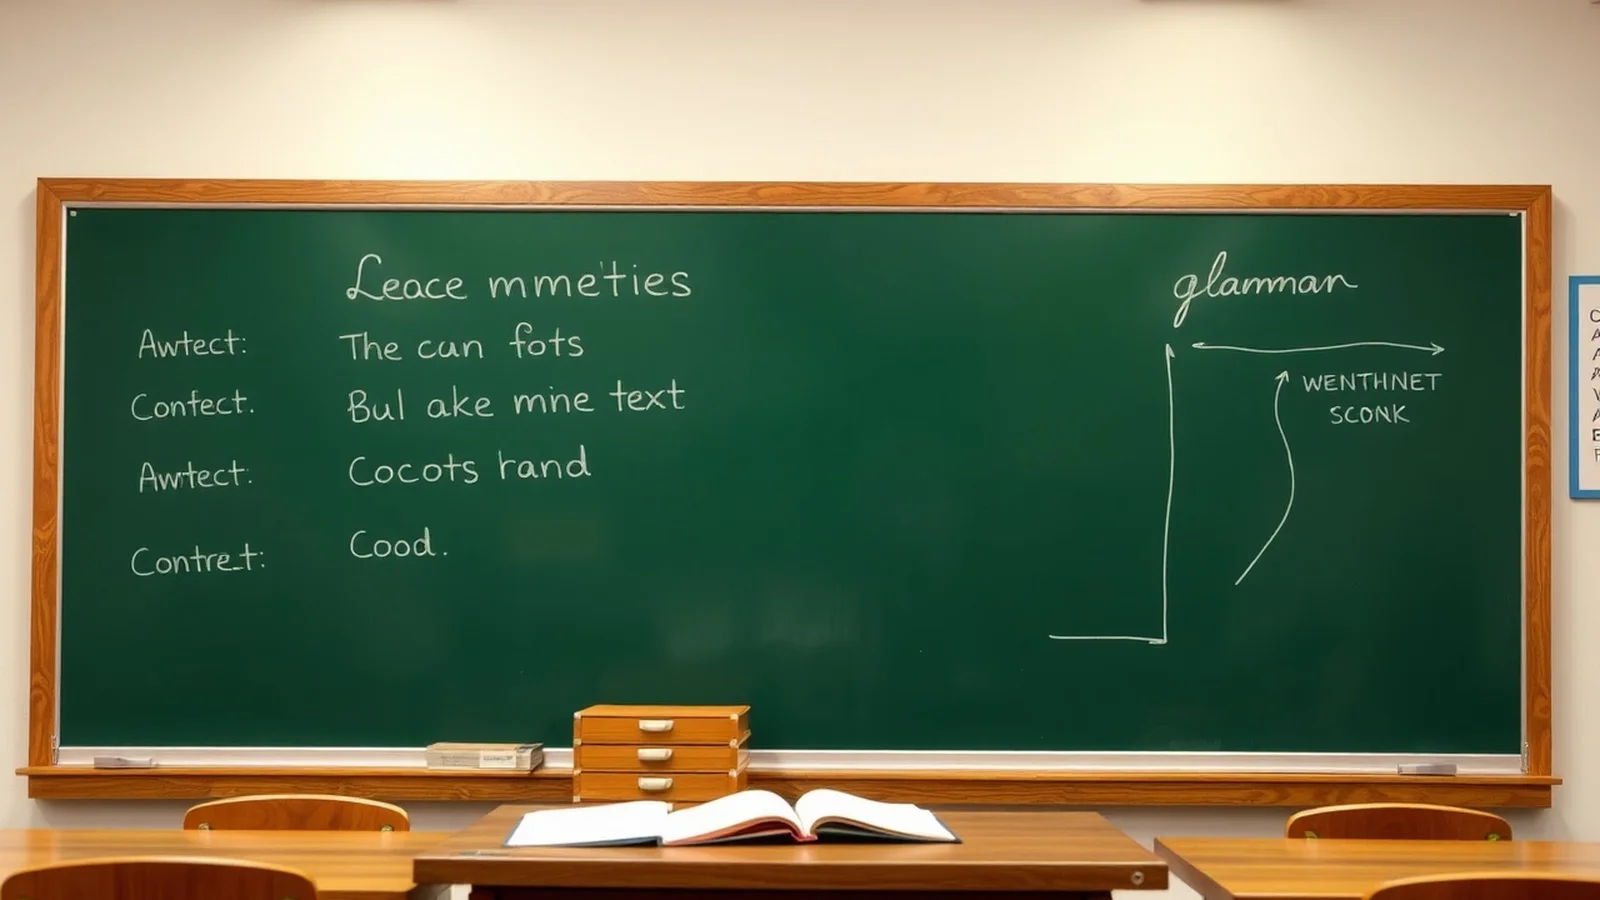 Leace mmeties
Awtect: The can fots
Confect. Bul ake mine text
Awtect: Cocots rand
Contret: Cood.
glamman
WENTHNET
SCONK